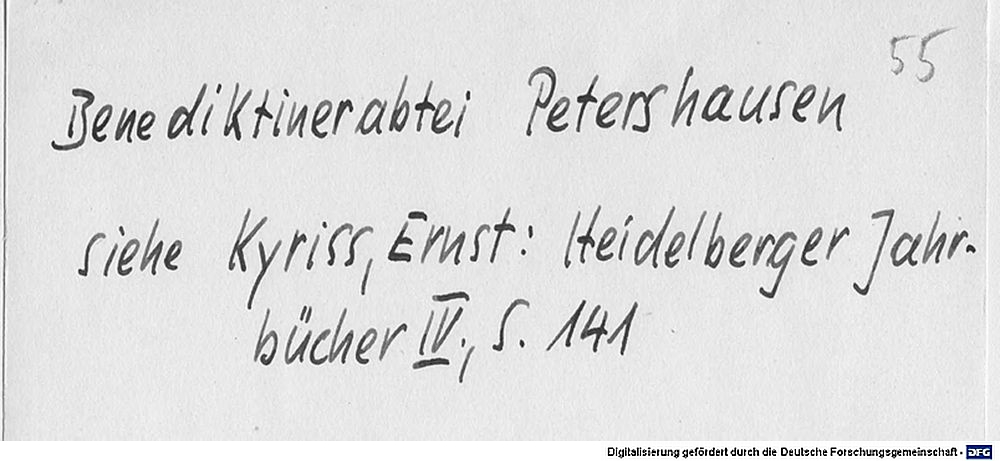 55
Benediktinerabtei Petershausen
siehe Kyriss, Ernst: Heidelberger Jahr-
bücher IV., S. 141
Digitalisierung gefördert durch die Deutsche Forschungsgemeinschaft - DFG